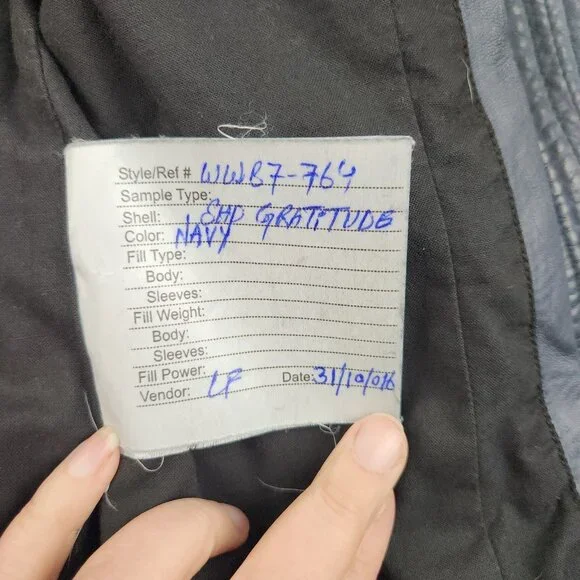 Style/Ref # WWB7-764
Sample Type:
Shell: SHP GRATITUDE
Color: NAVY
Fill Type:
Body:
Sleeves:
Fill Weight:
Body:
Sleeves:
Fill Power:
Vendor: LF Date: 31/10/016